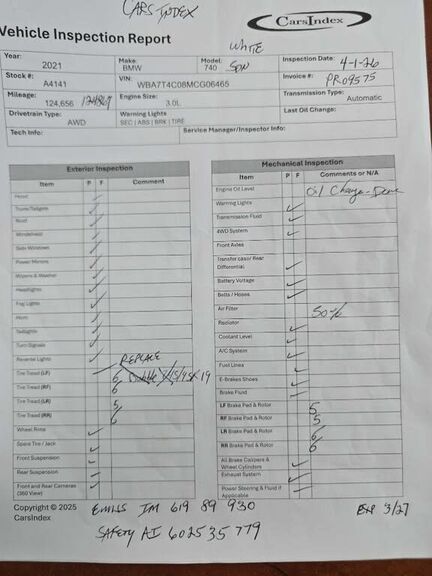 CARS INDEX
CarsIndex
Vehicle Inspection Report
WHITE
Year: 2021
Make: BMW
Model: 740 SDN
Inspection Date: 4-1-26
Stock #: A4141
VIN: WBA7T4C08MCG06465
Invoice #: PR09575
Mileage: 124,656
Engine Size: 3.0L
Transmission Type: Automatic
Drivetrain Type: AWD
Warning Lights
SEC | ABS | BRK | TIRE
Last Oil Change:
Tech Info:
Service Manager/Inspector Info:
Exterior Inspection
Item P F Comment
Hood
Trunk/Tailgate
Roof
Windshield
Side Windows
Power Mirrors
Wipers & Washer
Headlights
Fog Lights
Horn
Taillights
Turn Signals
Reverse Lights
REPLACE
Tire Tread (LF) 6
Tire Tread (RF) 6
Tire Tread (LR) 5
Tire Tread (RR) 6
Wheel Rims
Spare Tire / Jack
Front Suspension
Rear Suspension
Front and Rear Cameras
(360 View)
Mechanical Inspection
Item P F Comments or N/A
Engine Oil Level Oil Change - Done
Warning Lights
Transmission Fluid
4WD System
Front Axles
Transfer case/ Rear
Differential
Battery Voltage
Belts / Hoses
Air Filter 50%
Radiator
Coolant Level
A/C System
Fuel Lines
E-Brakes Shoes
Brake Fluid
LF Brake Pad & Rotor 5
RF Brake Pad & Rotor 5
LR Brake Pad & Rotor 6
RR Brake Pad & Rotor 6
All Brake Calipers &
Wheel Cylinders
Exhaust System
Power Steering & Fluid if
Applicable
Copyright © 2025
CarsIndex
EMISS IM 619 89 930
EXP 3/27
SAFETY AI 602535779